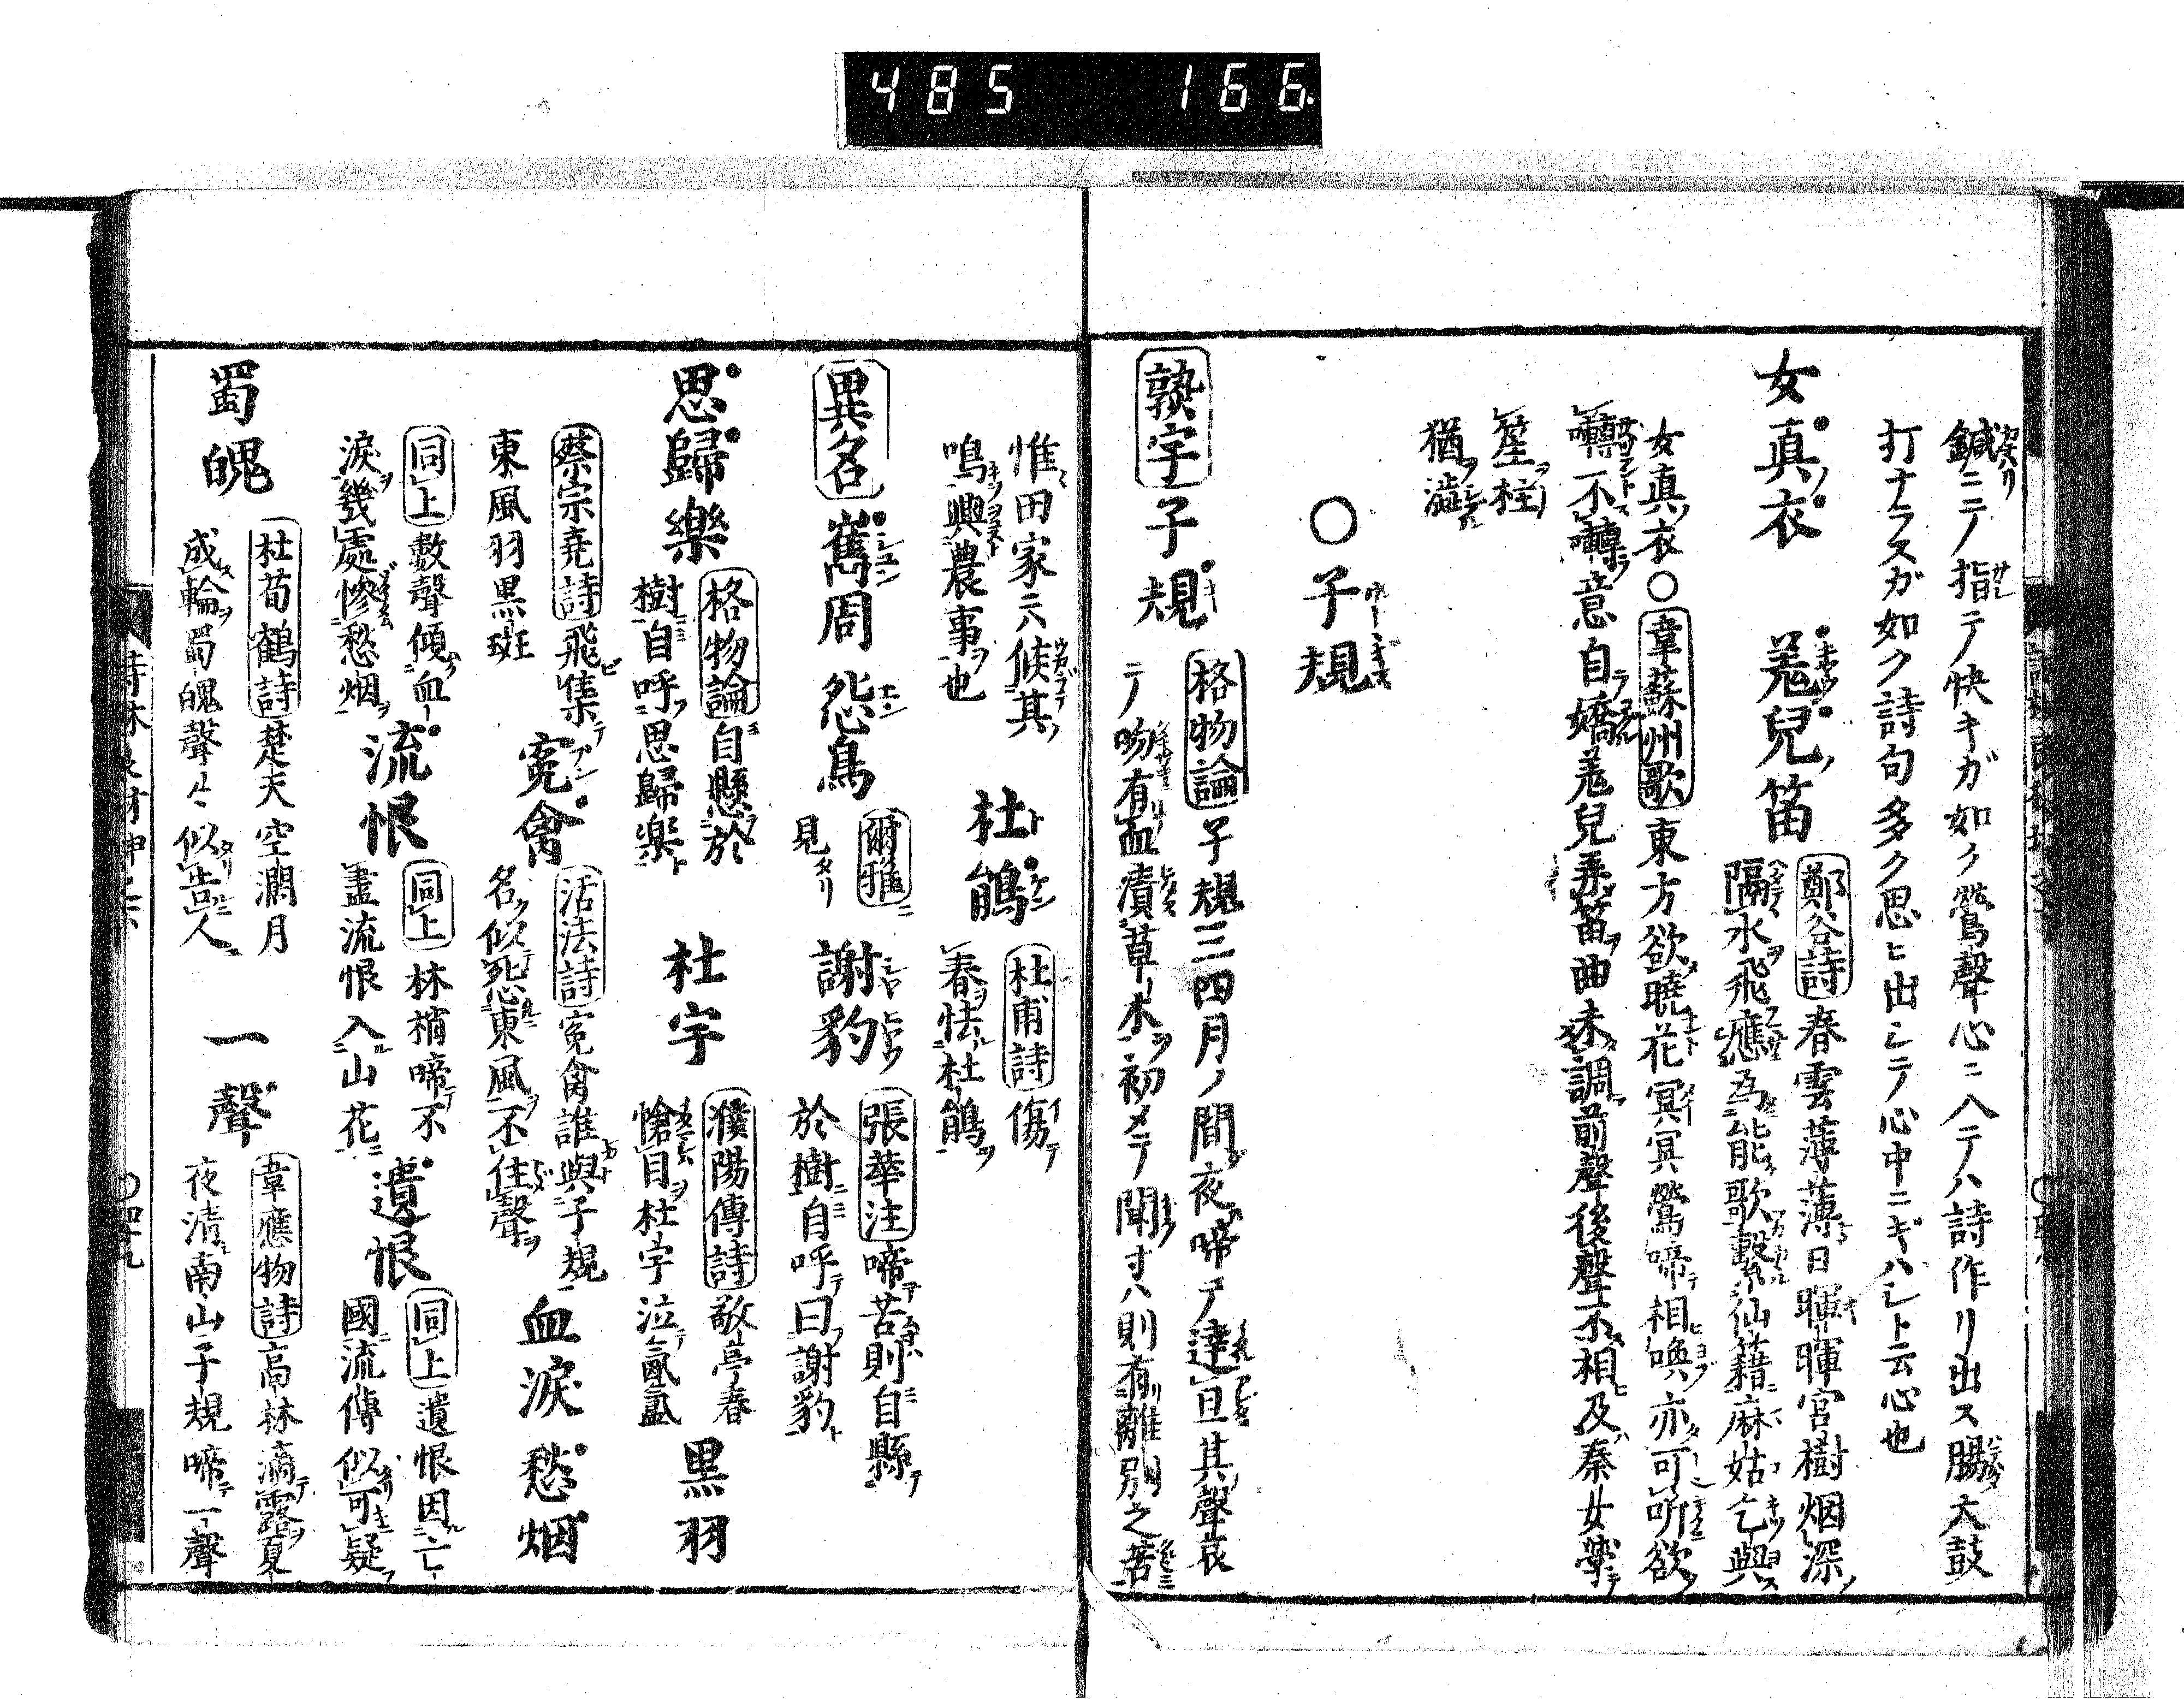 485 166
鍼ニノ指テ快キガ如ク鶯聲心ニ入テハ詩作リ出ス腸大鼓
打ナラスガ如ク詩句多ク思ヒ出シテ心中ニギハシト云心也
女真衣 羌兒笛 鄭谷詩 春雲薄薄日暉暉宮樹烟深
隔水飛應為能歌繫仙籍麻姑乞與
女真衣〇韋蘇州歌 東方欲曉花冥冥鶯啼相喚亦可听欲
囀不囀意自嬌羌兒弄笛曲未調前聲後聲不相及秦女學
箏柱
猶澁
〇子規
熟字 子規 格物論 子規三四月ノ間夜啼テ達旦其聲哀
テ吻有血漬草木初メテ聞寸ハ則有離別之苦
惟田家六候其
鳴興農事也
杜鵑 杜甫詩 傷
春怯杜鵑
異名 嶲周 怨鳥 爾雅
見タリ
謝豹 張華注 啼苦則自縣
於樹自呼曰謝豹
思歸樂 格物論 自懸於
樹自呼思歸樂
杜宇 濮陽傳詩 敬亭春
愴目杜宇泣
黒羽
蔡宗尭詩 飛集
東風羽黒斑
寃禽 活法詩 寃禽誰與子規
名似怨東風不住聲
血淚 愁烟
同上 數聲傾血
淚幾處慘愁烟
流恨 同上 林梢啼不
盡流恨入山花
遺恨 同上 遺恨因亡
國流傳似可疑
蜀魄 杜荀鶴詩 楚天空濶月
成輪蜀魄聲々似告人
一聲 韋應物詩 高林滴露夏
夜清南山子規啼一聲